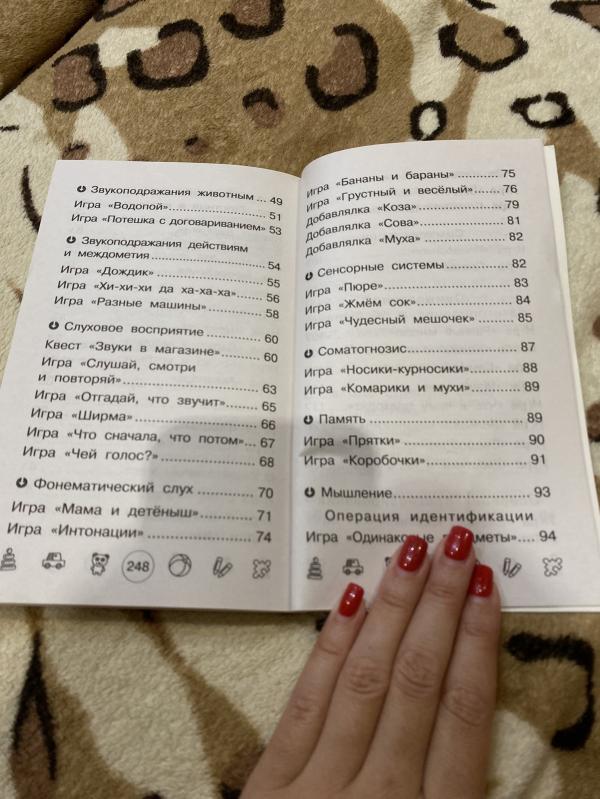 Звукоподражания животным ... 49
Игра «Водопой» ........................ 51
Игра «Потешка с договариванием» 53
Звукоподражания действиям
и междометия ........................... 54
Игра «Дождик» ......................... 55
Игра «Хи-хи-хи да ха-ха-ха» ...... 56
Игра «Разные машины» ............ 58
Слуховое восприятие ............... 60
Квест «Звуки в магазине» ......... 60
Игра «Слушай, смотри
и повторяй» ............................. 63
Игра «Отгадай, что звучит» ....... 65
Игра «Ширма» .......................... 66
Игра «Что сначала, что потом» ... 67
Игра «Чей голос?» .................... 68
Фонематический слух ............... 70
Игра «Мама и детёныш» ............ 71
Игра «Интонации» ..................... 74
248
Игра «Бананы и бараны» ........... 75
Игра «Грустный и весёлый» ....... 76
Добавлялка «Коза» ................... 79
Добавлялка «Сова» ................... 81
Добавлялка «Муха» ................... 82
Сенсорные системы .................. 82
Игра «Пюре» ............................ 83
Игра «Жмём сок» ..................... 84
Игра «Чудесный мешочек» ......... 85
Соматогнозис ........................... 87
Игра «Носики-курносики» .......... 88
Игра «Комарики и мухи» ............ 89
Память ..................................... 89
Игра «Прятки» .......................... 90
Игра «Коробочки» ..................... 91
Мышление ................................ 93
Операция идентификации
Игра «Одинаковые .... 94